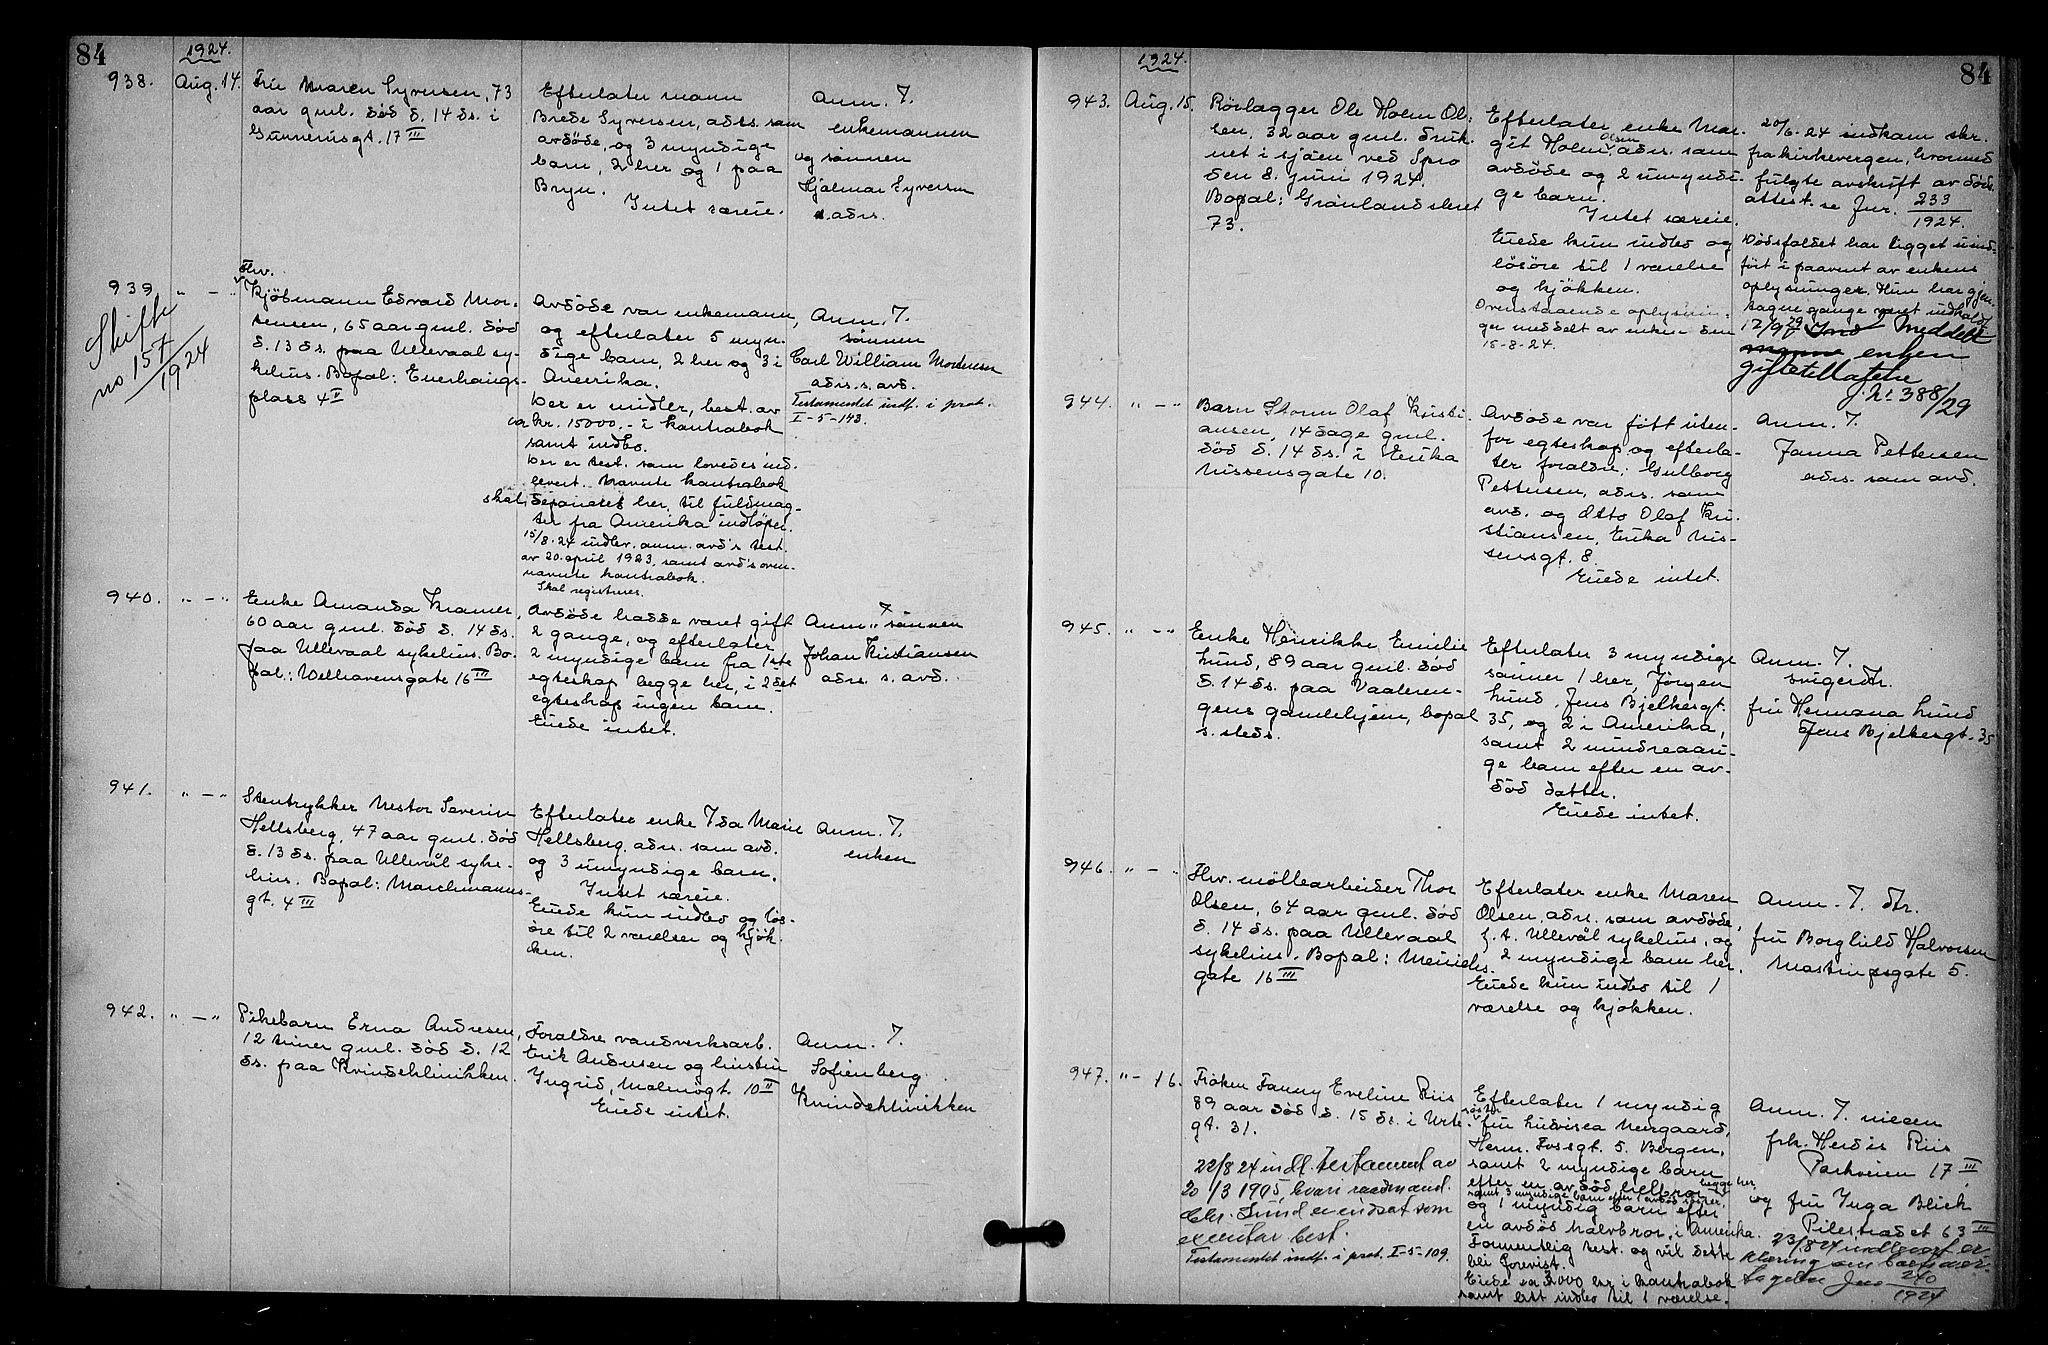 84
1924.
938.
Aug. 14.
Fru Maren Syversen, 73
aar gml. död d. 14 ds. i
Gunnerusgt. 17 III
Efterlater mann
Brede Syversen, adrs. som
avdöde, og 3 myndige
barn, 2 her og 1 paa
Bryn.
Intet særeie.
Anm. 7.
enkemannen
og sönnen
Hjalmar Syversen
s. adrs.
939.
" — "
Skifte
no 157/1924
Fhv.
Kjöbmann Edvard Mor-
tensen, 65 aar gml. död
d. 13 ds. paa Ullevaal sy-
kehus. Bopal: Enerhaugs-
plass 4 II
Avdöde var enkemann,
og efterlater 5 myn-
dige barn, 2 her og 3 i
Amerika.
Der er midler, best. av
ca kr. 15000.- i kontrabok
samt indbo.
Der er test. som lovedes ind-
levert. Nævnte kontrabok
skal deponeres her, til fuldmag-
ter fra Amerika indlöper.
15/8-24 indlev. anm. avd's test.
av 20. april 1923, samt avd's oven-
nævnte kontrabok.
Skal registreres.
Anm. 7.
sönnen
Carl William Mortensen
adrs. s. avd.
Testamentet indf. i prot.
I-5-143.
940.
" — "
Enke Amanda Kramer,
60 aar gml. död d. 14 ds.
paa Ullevaal sykehus. Bo-
pal: Welhavensgate 16 III
Avdöde hadde været gift
2 gange, og efterlater
2 myndige barn fra 1ste
egteskap begge her, i 2det
egteskap ingen barn.
Eiede intet.
Anm. 7. sönnen
Johan Kristiansen
adrs. s. avd.
941.
" — "
Stentrykker Nestor Severin
Hellsberg, 47 aar gml. död
d. 13 ds. paa Ullevål syke-
hus. Bopal: Marchmanns-
gt. 4 III
Efterlater enke Ida Marie
Hellsberg, adrs. som avd.
og 3 umyndige barn.
Intet særeie.
Eiede kun indbo og lös-
öre til 2 værelser og kjök-
ken.
Anm. 7.
enken
942.
" — "
Pikebarn Erna Andresen,
12 timer gml. död d. 12
ds. paa Kvindeklinikken.
Foraldre vandverksarb.
Erik Andresen og hustru
Ingrid, Malmögt. 10 II
Eiede intet.
Anm. 7.
Sofienberg
Kvindeklinikken
84
1924.
943.
Aug. 15.
Rörlægger Ole Holm Ol-
sen, 32 aar gml. druk-
net i sjöen ved Spro
den 8. juni 1924.
Bopal: Grönlandsleret
73.
Efterlater enke Mar-
git Holm Olsen, adrs. som
avdöde og 2 umyndi-
ge barn.
Intet særeie.
Eiede kun indbo og
lösöre til 1 værelse
og kjökken.
Ovenstaaende oplysnin-
ger meddelt av enken den
15-8-24.
20/6-24 indkom skr.
fra kirkevergen, hvormed
fulgte avskrift av döds-
attest. se Jnr. 233/1924.
Dödsfaldet har ligget uind-
fört i paavent av enkens
oplysninger. Hun har gjen-
tagne gange været indkaldt
12/9 29 Meddelt
enken
giftetillatelse
J. nr 388/29
944.
" — "
Barn Storm Olaf Kristi-
ansen, 14 dage gml.
död d. 14 ds. i Erika
Nissensgate 10.
Avdöde var fött uten-
for egteskap og efterla-
ter foraldre: Gulborg
Pettersen, adrs. som
avd. og Otto Olaf Kri-
stiansen, Erika Nis-
sensgt. 8.
Eiede intet.
Anm. 7.
Janna Pettersen
adrs. som avd.
945.
" — "
Enke Henrikke Emilie
Lund, 89 aar gml. död
d. 14 ds. paa Vaaleren-
gens gamlehjem, bopal
s. steds.
Efterlater 3 myndige
sönner 1 her, Jörgen
Lund, Jens Bjelkesgt.
35, og 2 i Amerika,
samt 2 mindreaari-
ge barn efter en av-
död datter.
Eiede intet.
Anm. 7.
svigerdtr.
fru Hermana Lund
Jens Bjelkesgt. 35
946.
" — "
Fhv. möllearbeider Thor
Olsen, 64 aar gml. död
d. 14 ds. paa Ullevaal
sykehus. Bopal: Heimdals-
gate 16 III
Efterlater enke Maren
Olsen, adrs. som avdöde,
f. t. Ullevål sykehus, og
2 myndige barn her.
Eiede kun indbo til 1
værelse og kjökken.
Anm. 7. dtr.
fru Borghild Halvorsen
Mostingsgate 5.
947.
" — 16.
Fröken Fanny Eveline Riis
89 aar död d. 15 ds. i Urte-
gt. 31.
22/8 24 indl. testament av
20/3 1905, hvori raadmand.
Chr. Lund er indsat som
executor test.
Testamentet indf. i prot. I-5-109.
Efterlater 1 myndig
söster fru Ludvisca Nergaard,
Herm. Fossgt. 5. Bergen,
samt 2 myndige barn
efter en avdöd helbror, begge her,
samt 3 myndige barn efter 1 avdöd söster
og 1 myndig barn efter
en avdöd halvbror, i Amerika.
Formentlig test. og vil dette
bli forevist.
Eiede ca 3000 kr. i kontrabok
samt litt indbo til 1 værelse.
Anm. 7. niecen
frk. Herdis Riis
Parkveien 17 III
og fru Inga Blich
Pilestrædet 63 III
23/8 24 indlevert er-
klæring om
Jnr 240/1924